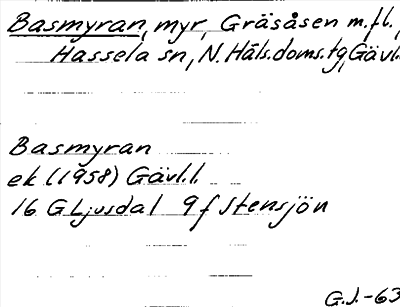 Basmyran, myr, Gräsåsen m.fl.,
Hassela sn, N. Häls.doms.tg, Gävl.
Basmyran
ek (1958) Gävl.l.
16 G Ljusdal 9 f Stensjön
G.J.-63